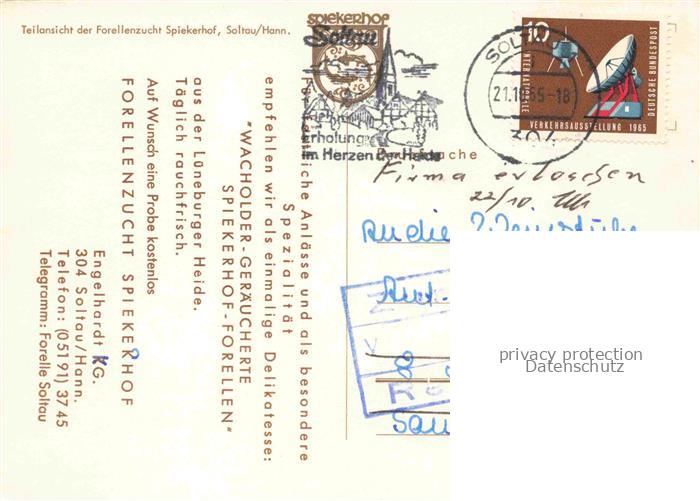 Teilansicht der Forellenzucht Spiekerhof, Soltau/Hann.
SPIEKERHOF
Soltau
Erholung
im Herzen der Heide
21.10.65-18
304
10
INTERNATIONALE
VERKEHRSAUSSTELLUNG 1965
DEUTSCHE BUNDESPOST
Drucksache
Firma erloschen
22/10.
An die Weinstube
liche Anlässe und als besondere
Spezialität
empfehlen wir als einmalige Delikatesse:
"WACHOLDER-GERÄUCHERTE
SPIEKERHOF-FORELLEN"
aus der Lüneburger Heide.
Täglich rauchfrisch.
Auf Wunsch eine Probe kostenlos
FORELLENZUCHT SPIEKERHOF
Engelhardt KG.
304 Soltau/Hann.
Telefon: (051 91) 37 45
Telegramm: Forelle Soltau
privacy protection
Datenschutz